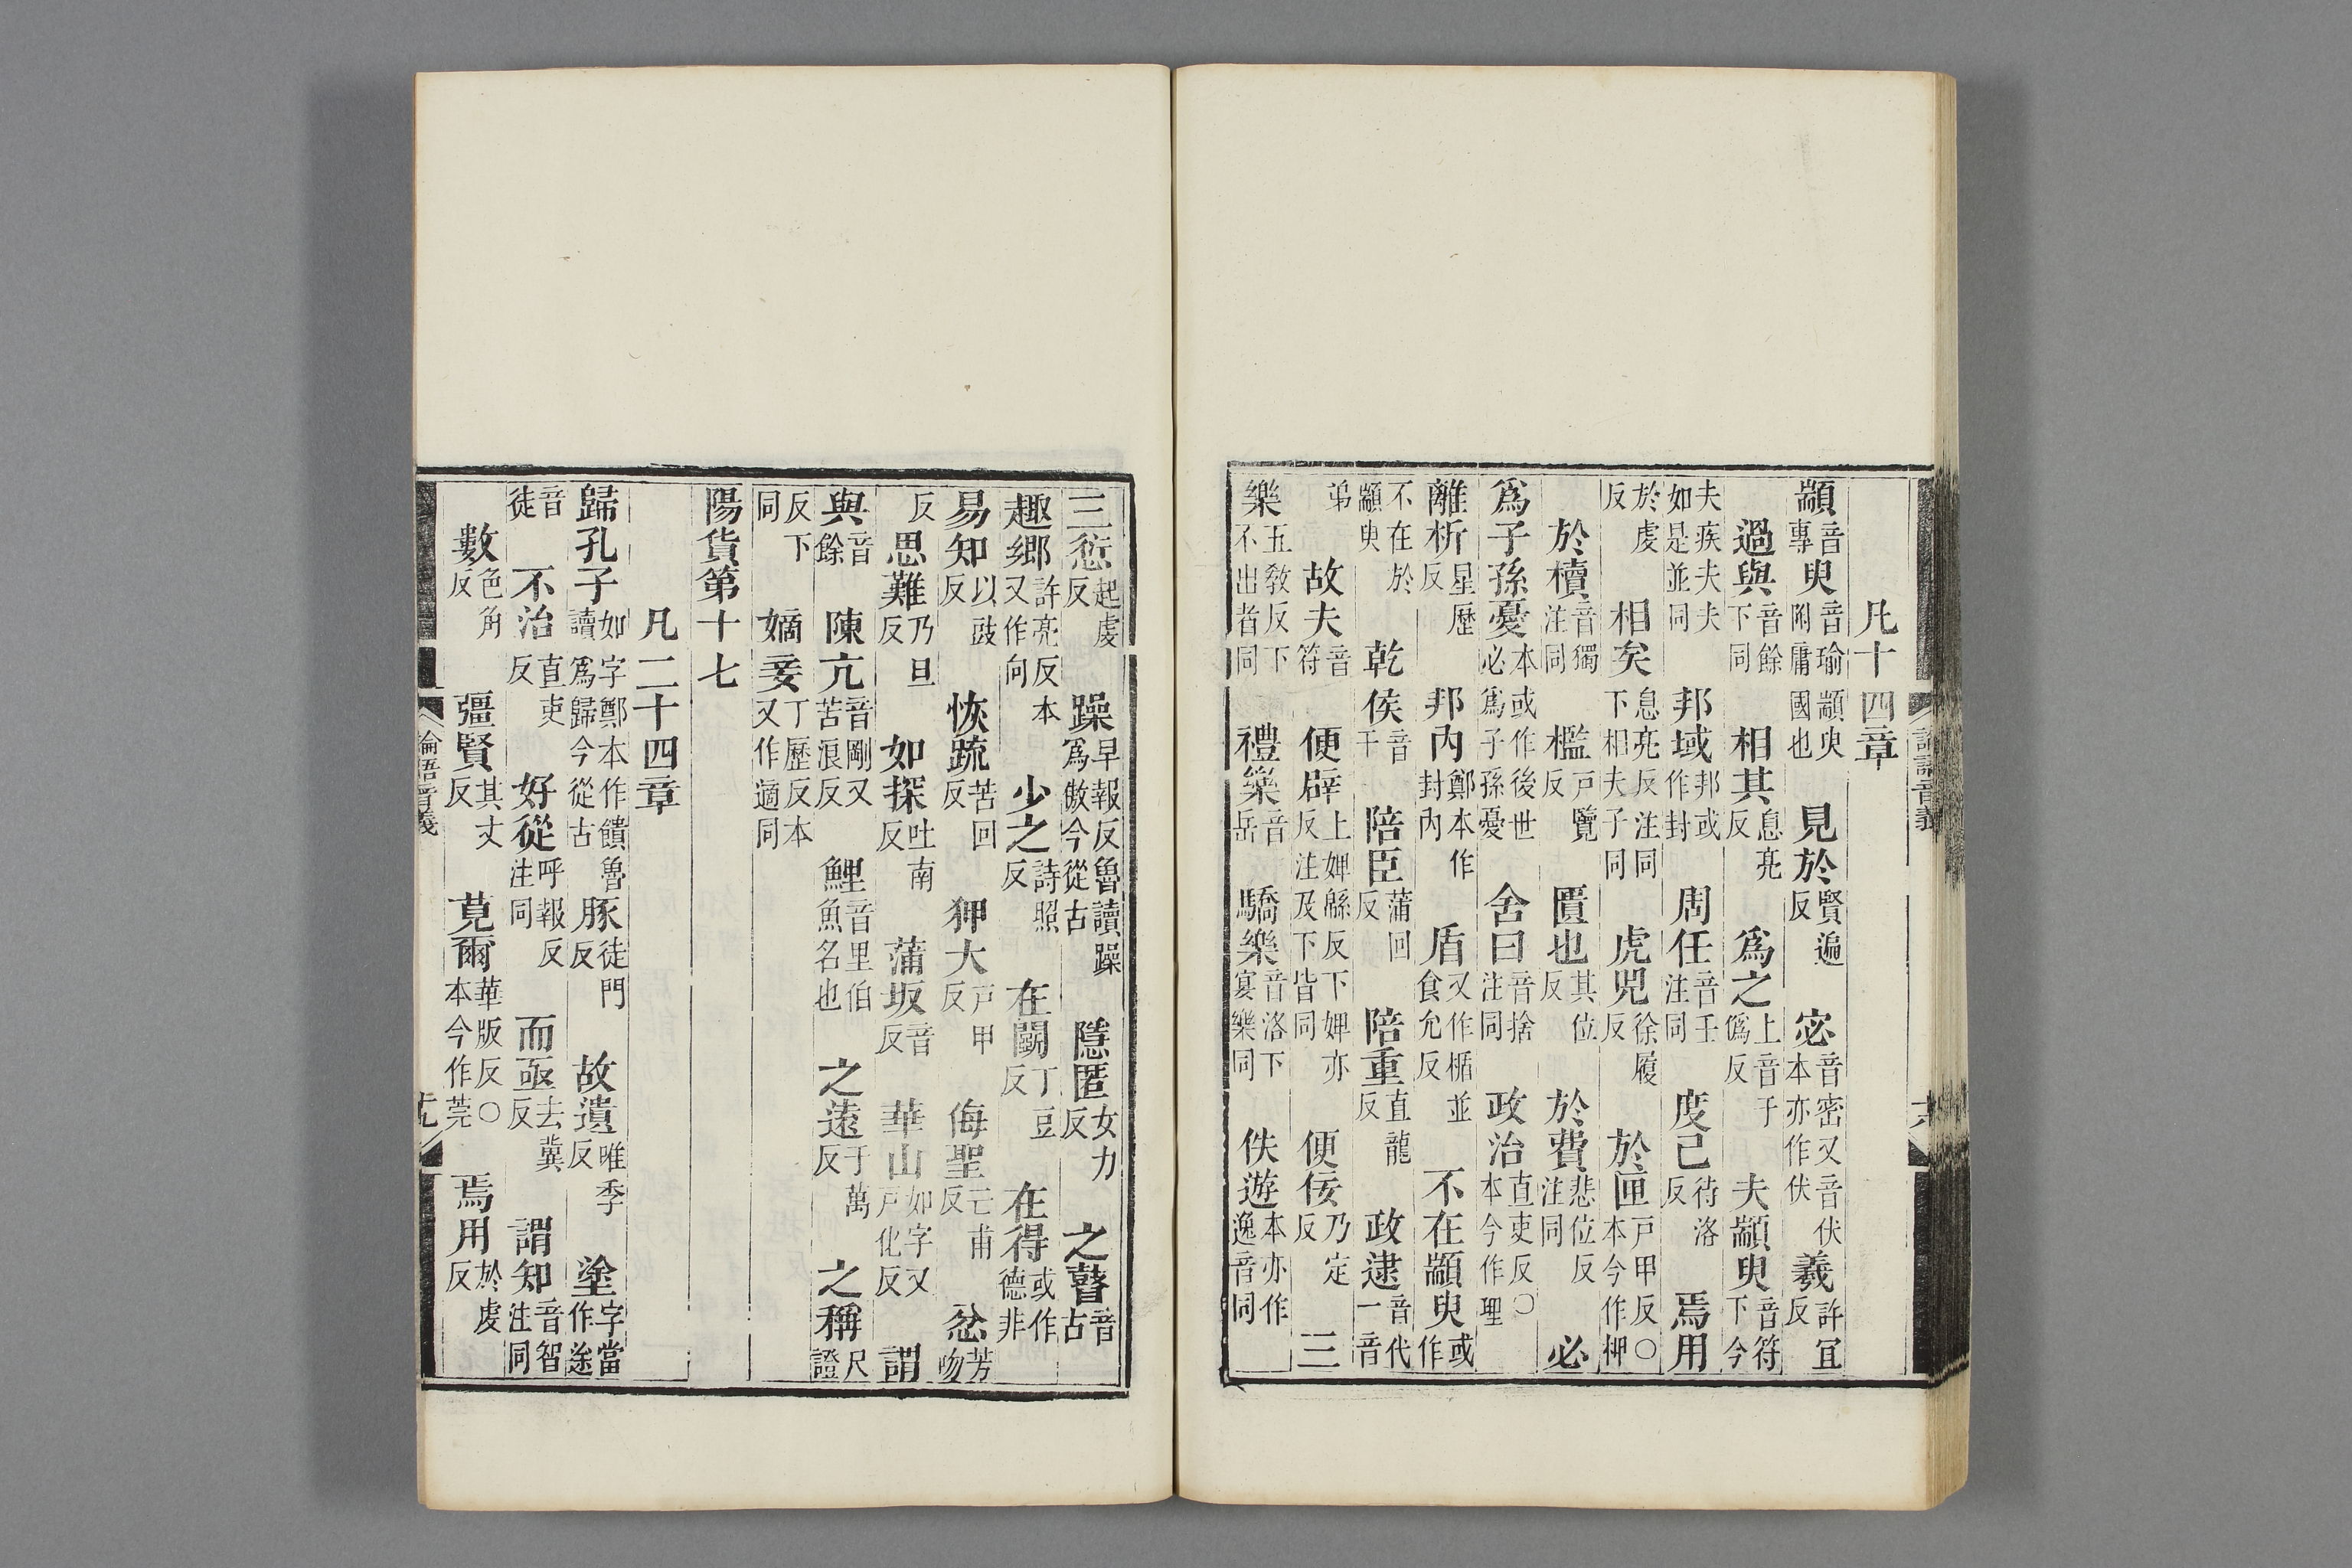 凡十四章
顓音專臾音瑜顓臾附庸國也見於賢遍反宓音密又音伏本亦作伏羲許宜反
過與音餘下同相其息亮反爲之上音于僞反夫顓臾音符下今
夫疾夫夫如是並同邦域邦或作封周任音壬注同度己待洛反焉用
於虔反相矣息亮反注同下相夫子同虎兕徐履反於匣戶甲反〇本今作柙
於櫝音獨注同檻戶覽反匱也其位反於費悲位反注同必
爲子孫憂本或作後世必爲子孫憂舍曰音捨注同政治直吏反〇本今作理
離析星歷反邦內鄭本作封內盾又作楯並食允反不在顓臾或作
不在於顓臾乾侯音干陪臣蒲回反陪重直龍反政逮音代一音
弟故夫音符便辟上婢緜反下婢亦反注及下皆同便佞乃定反三
樂五敎反下不出者同禮樂音岳驕樂音洛下宴樂同佚遊本亦作逸音同
論語音義
三愆起虔反躁早報反魯讀躁爲傲今從古隱匿女力反之瞽音古
趣鄉許亮反本又作向少之詩照反在鬭丁豆反在得或作德非
易知以豉反恢疏苦回反狎大戶甲反侮聖亡甫反忿芳吻
反思難乃旦反如探吐南反蒲坂音反華山如字又戶化反謂
與音餘陳亢音剛又苦浪反鯉音里伯魚名也之遠于萬反之稱尺證
反下同嫡妾丁歷反本又作適同
陽貨第十七
凡二十四章
歸孔子如字鄭本作饋魯讀爲歸今從古豚徒門反故遺唯季反塗字當作途
音徒不治直吏反好從呼報反注同而亟去冀反謂知音智注同
數色角反彊賢其丈反莧爾華版反〇本今作莞焉用於虔反
論語音義